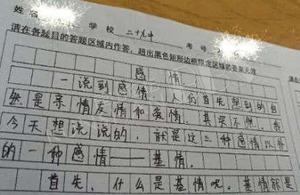 姓名 学校 二十九中 考号
请在各题目的答题区域内作答，超出黑色矩形边框限定区域的答案无效
感情
一说到感情，人们首先想到的自
然是亲情友情和爱情。其实不然，我
今天想说说的，就是这三种感情以外
的一种感情——基情。
首先，什么是基情呢，基情就是